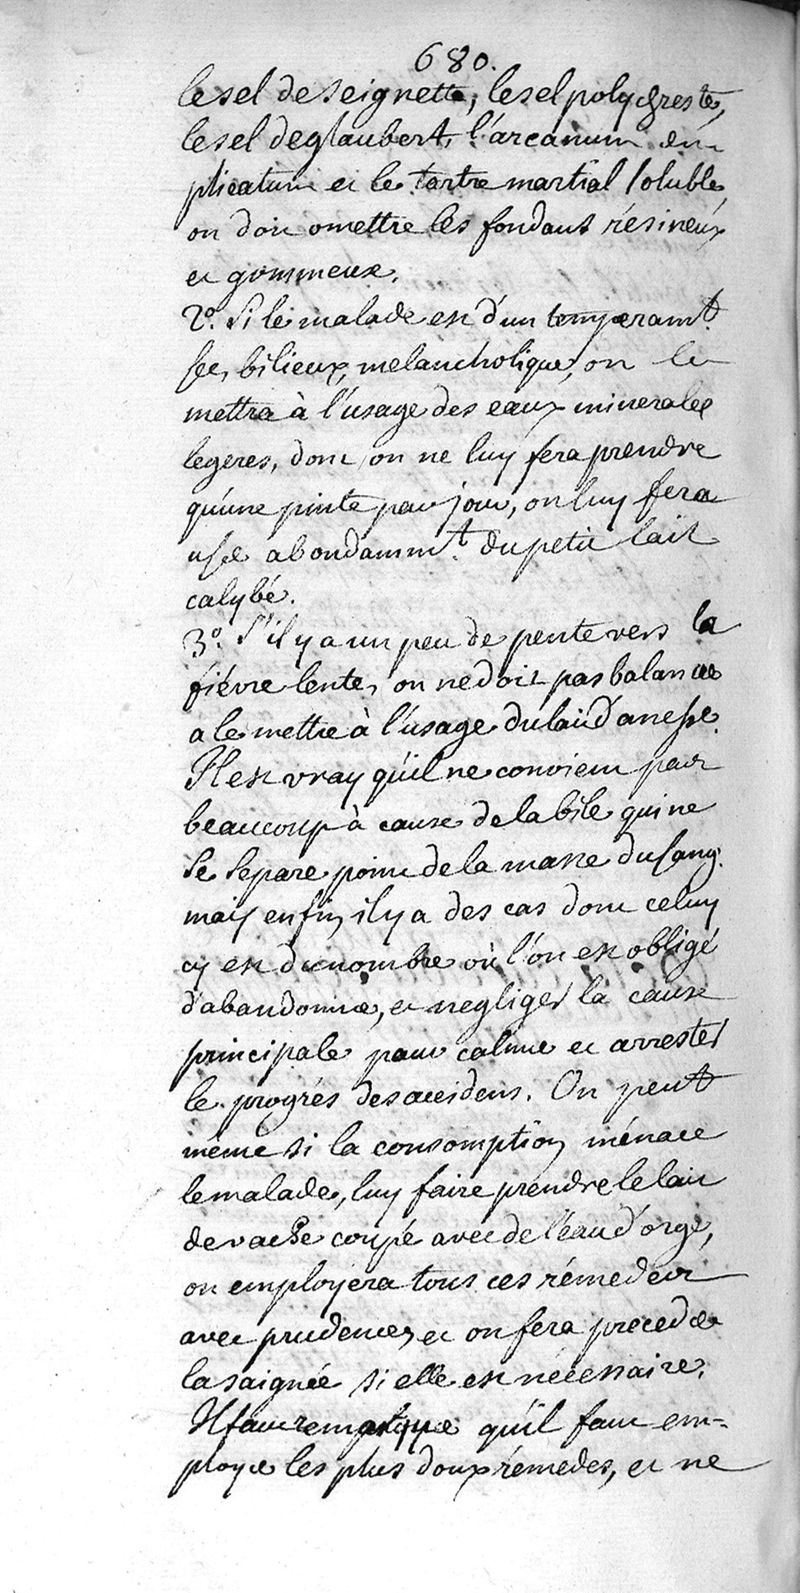 680.
le sel de seignette, le sel polychreste,
le sel de glaubert, l'arcanum du-
plicatum et le tartre martial soluble,
on doit omettre les fondans résineux
et gommeux.
2º. Si le malade est d'un temperamt.
sec, bilieux, melancholique, on le
mettra à l'usage des eaux minerales
legeres, dont on ne luy fera prendre
qu'une pinte par jour, on luy fera
user abondammt. du petit lait
calybé.
3º. S'il y a un peu de pente vers la
fiévre lente, on ne doit pas balancer
a le mettre à l'usage du lait d'anesse.
Il est vray qu'il ne convient pas
beaucoup à cause de la bile qui ne
se separe point de la masse du sang.
mais enfin, il y a des cas dont celuy
cy est du nombre où l'on est obligé
d'abandonner, et negliger la cause
principale pour calmer et arrester
le progrès des accidens. On peut
même si la consomption ménace
le malade, luy faire prendre le lait
de vache coupé avec de l'eau d'orge,
on employera tous ces rémedes
avec prudence, et on fera preceder
la saignée si elle est nécessaire.
Il faut remarquer qu'il faut em-
ployer les plus doux rémedes, et ne